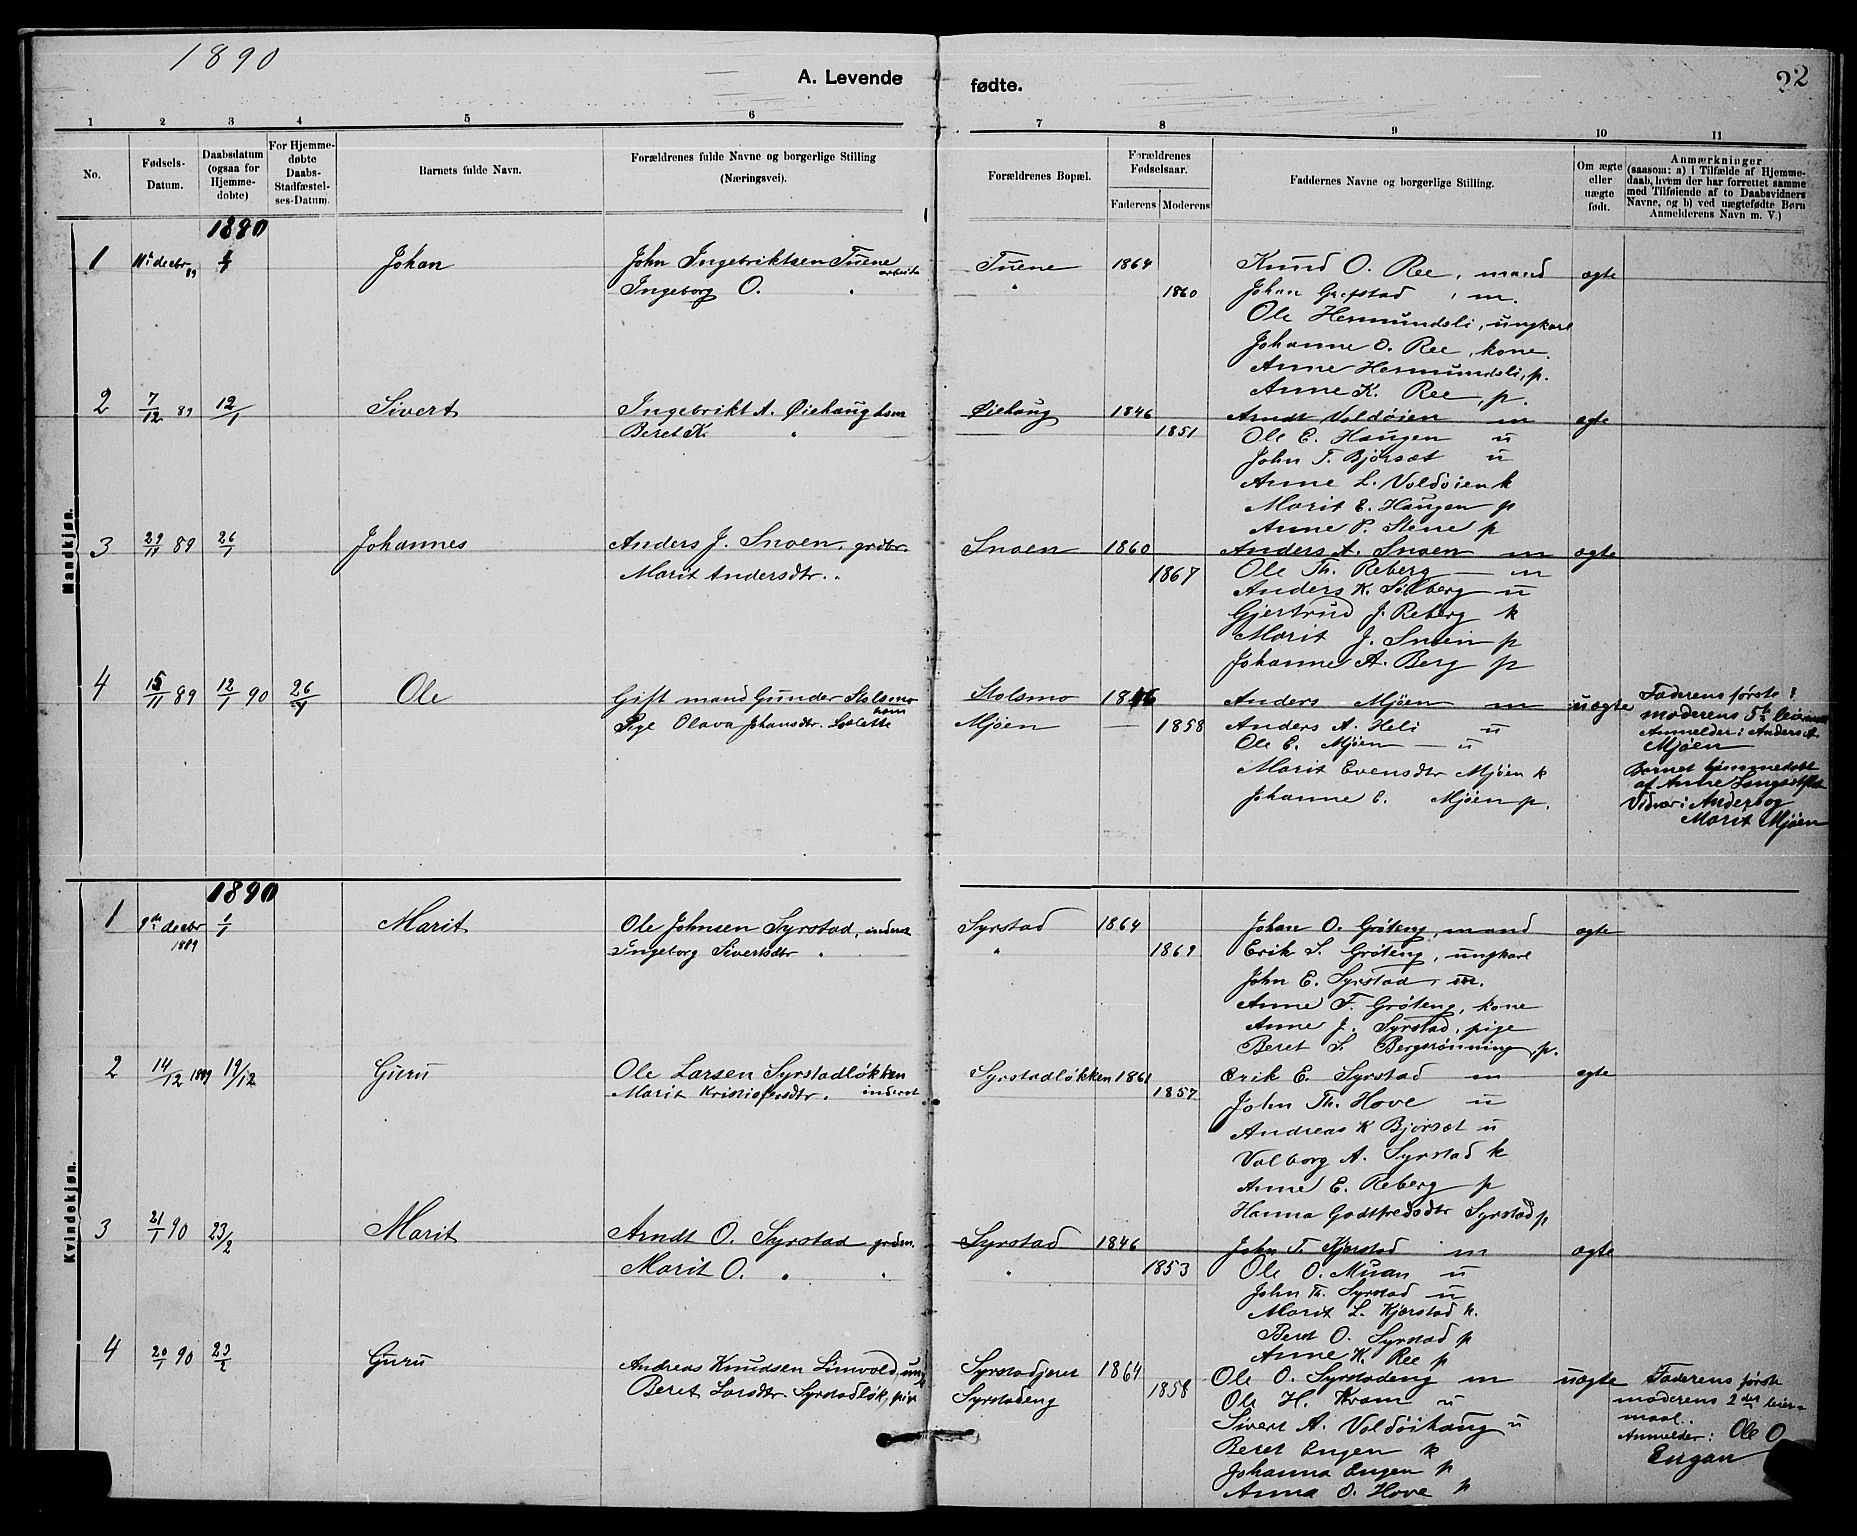 1890
A. Levende fødte.
22
1 2 3 4 5 6 7 8 9 10 11
No.
Fødsels-Datum.
Daabsdatum (ogsaa for Hjemme-døbte)
For Hjemme-døbte Daabs-Stadfæstel-ses-Datum.
Barnets fulde Navn.
Forældrenes fulde Navne og borgerlige Stilling (Næringsvei).
Forældrenes Bopæl.
Forældrenes Fødselsaar.
Faderens Moderens
Faddernes Navne og borgerlige Stilling.
Om ægte eller uægte født.
Anmærkninger (saasom: a) i Tilfælde af Hjemme-daab, hvem der har forrettet samme med Tilføiende af to Daabsvidners Navne, og b) ved uægtefødte Børn Anmelderens Navn m. V.)
Mandkjøn.
1890
1 11te decbr 89 Johan John Ingebriktsen Tuene Tuene 1864 Knud O. Ree, mand ægte
Ingeborg O. " " 1860 Johan Grefstad, m.
Ole Hermundsli, ungkarl
Johanne O. Ree, kone.
Anne Hermundsli, p.
Anne K. Ree, p.
2 7/12 89 12/1 Sivert Ingebrikt A. Øiehaug hsm Øiehaug 1846 Arndt Voldøien m ægte
Beret K. " 1851 Ole E. Haugen u
John T. Bjørsæt u
Anne L. Voldøien k
Marit E. Haugen p
Anne P. Stene p
3 29/11 89 26/1 Johannes Anders J. Snoen, grdbr. Snoen 1860 Anders A. Snoen m ægte
Marit Andersdtr. " 1867 Ole Th. Reberg m
Anders K. Solberg u
Gjertrud J. Reberg k
Marit J. Snoen p
Johanne A. Berg p
4 15/11 89 12/1 90 26/1 Ole Gift mand Gunder Stolsmo Stolsmo Anders Mjøen m uægte Faderens første
Pige Olava Johansdtr. Mjøen 1858 Anders A. Heli u moderens 5te
Ole E. Mjøen u Anmelder: Anders A. Mjøen
Marit Evensdtr Mjøen k Barnet hjemmedøbt
Johanne E. Mjøen p. af Anne
Vidner: Anders og
Marit Mjøen
Kvindekjøn.
1890
1 9de decbr 1889 1/1 Marit Ole Johnsen Syrstad, inderst Syrstad 1864 Johan O. Grøteng, mand ægte
Ingeborg Sivertsdtr " " 1869 Erik S. Grøteng, ungkarl
John E. Syrstad, m.
Anne F. Grøteng, kone
Anne J. Syrstad, pige
Beret S. Bergsrønning, p.
2 14/12 1889 19/12 Guru Ole Larsen Syrstadløkken Syrstadløkken 1861 Erik E. Syrstad m ægte
Marit Kristofersdtr. inderst 1857 John Th. Hove u
Andreas K Bjørset u
Valborg A. Syrstad k
Anne E. Reberg p
Hanna Godtfredsdtr Syrstad p
3 21/1 90 23/2 Marit Arndt O. Syrstad grdm. Syrstad 1846 John T. Kjørstad m ægte
Marit O. " " " 1853 Ole O. Muan u
John Th. Syrstad u
Marit L. Kjørstad k.
Beret O. Syrstad p
Anne K. Ree p
4 20/1 90 23/2 Guru Andreas Knudsen Limvold, ung Syrstadjeret 1864 Ole O. Syrstadeng m uægte Faderens første
Beret Larsdtr. Syrstadløk, pige Syrstadeng 1858 Ole H. Kvam u moderens 2det leier-
Sivert A. Voldøihaug u maal.
Beret Engen k Anmelder: Ole O
Johanna Engen p Engan
Anna O. Hove p